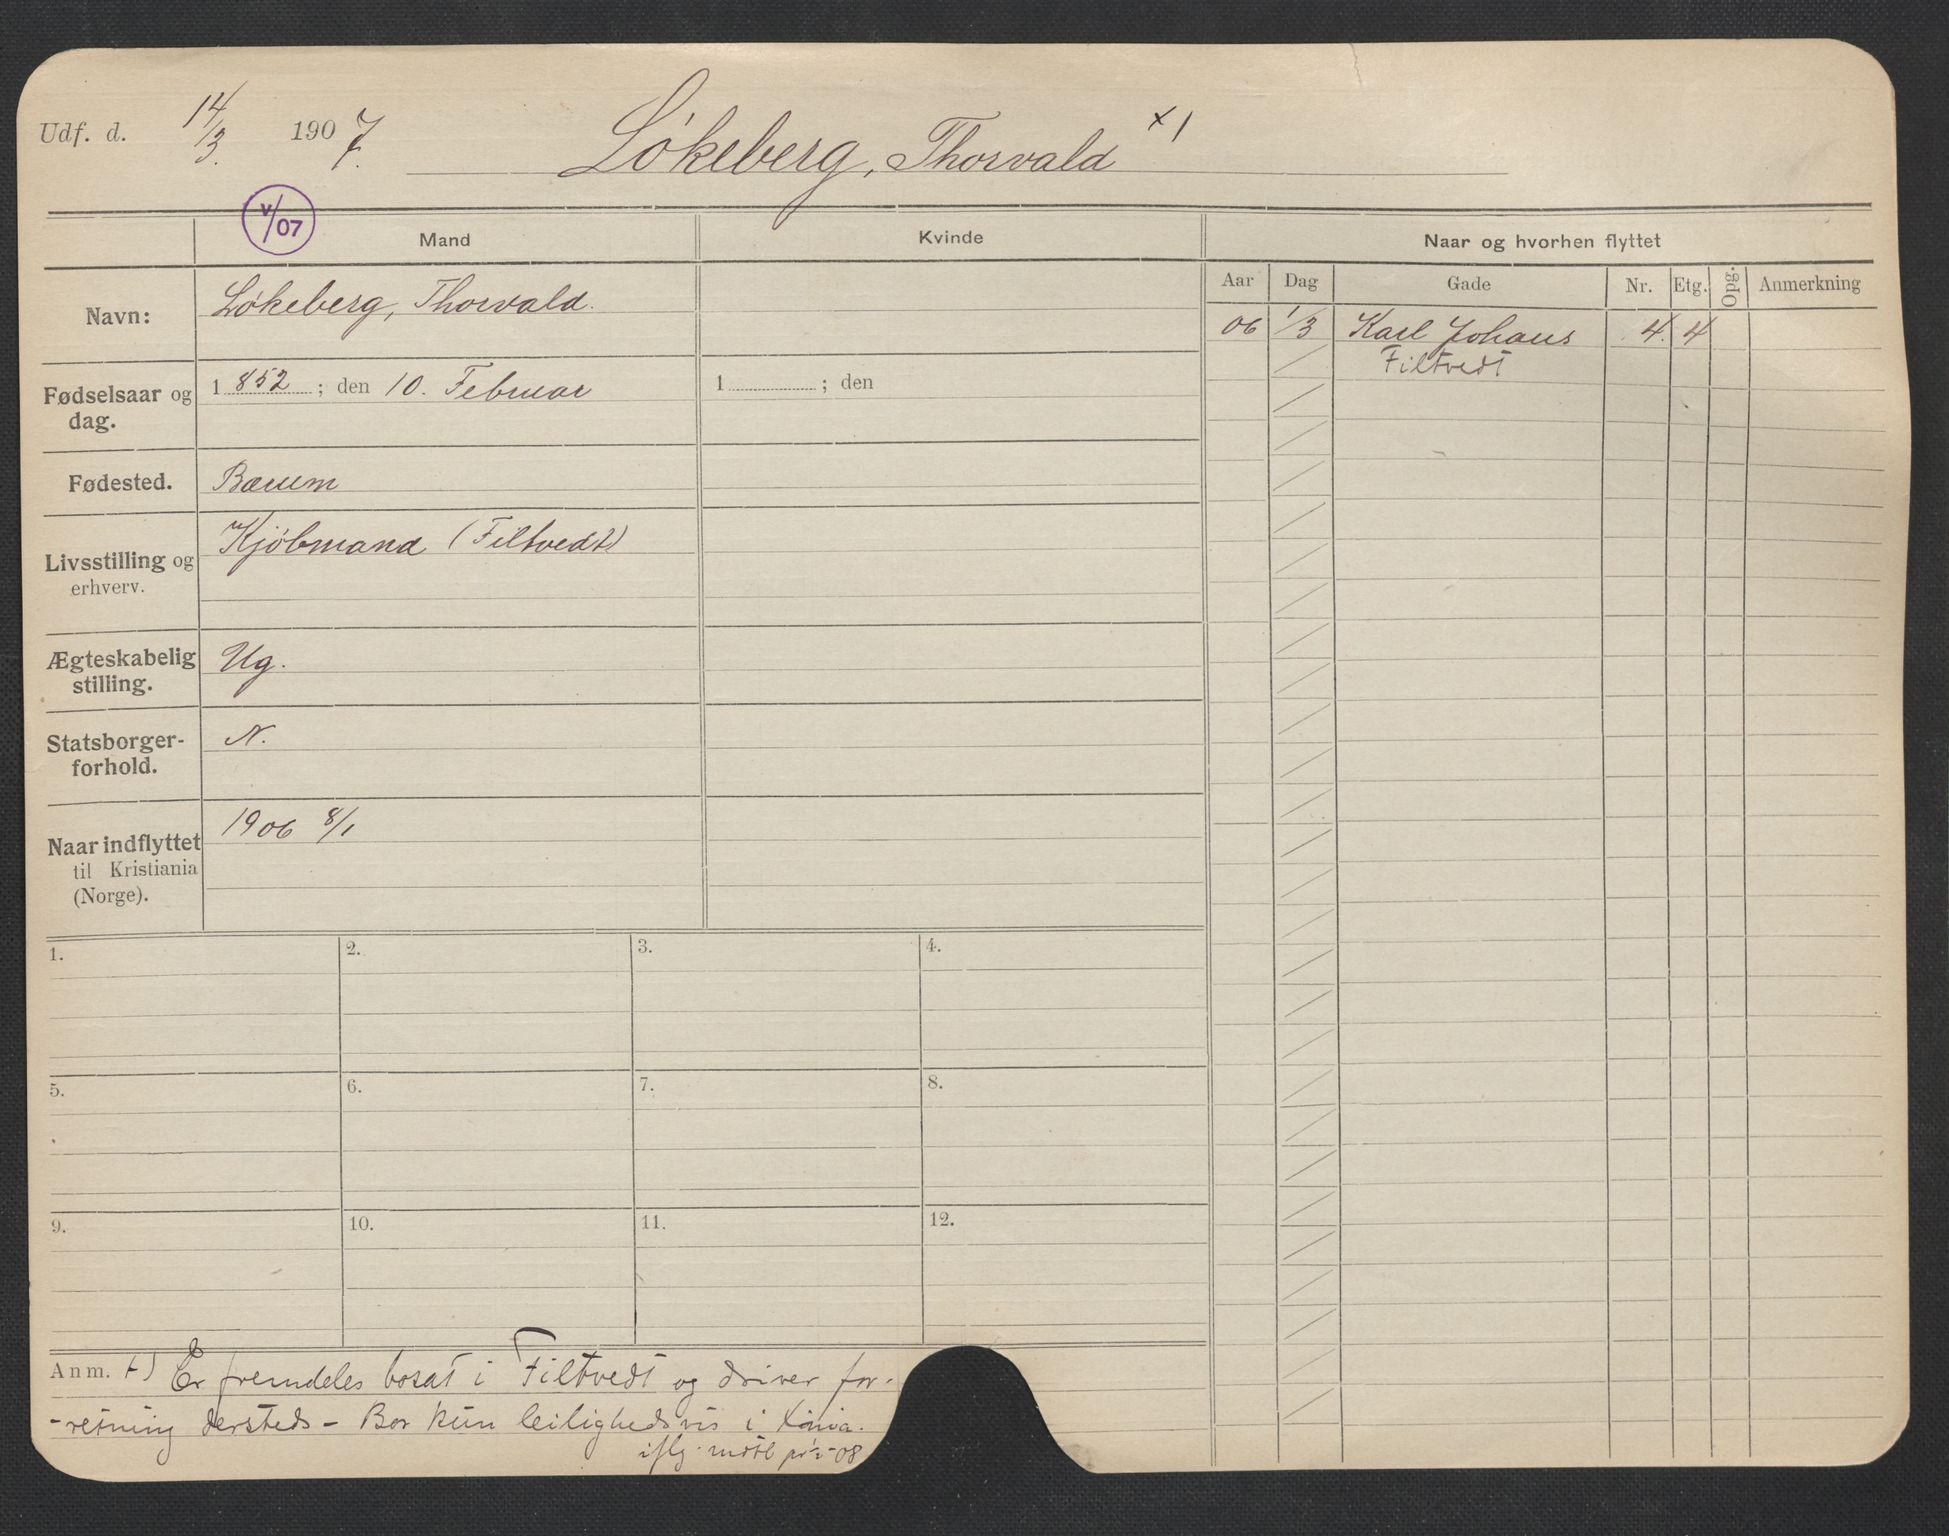 Udf. d. 14/3. 1907.
Løkeberg, Thorvald x)
V/07
Mand
Kvinde
Naar og hvorhen flyttet
Aar Dag Gade Nr. Etg. Opg. Anmerkning
Navn:
Løkeberg, Thorvald.
06 1/3 Karl Johans 4. 4
Filtvedt
Fødselsaar og
dag.
1852; den 10. Februar
1 ; den
Fødested.
Bærum
Livsstilling og
erhverv.
Kjøbmand (Filtvedt)
Ægteskabelig
stilling.
Ug.
Statsborger-
forhold.
N.
Naar indflyttet
til Kristiania
(Norge).
1906 8/1
1. 2. 3. 4.
5. 6. 7. 8.
9. 10. 11. 12.
Anm. +) Er fremdeles bosat i Filtvedt og driver for-
-retning dersteds - Bor kun leilighedsvis i Xania.
iflg. -08